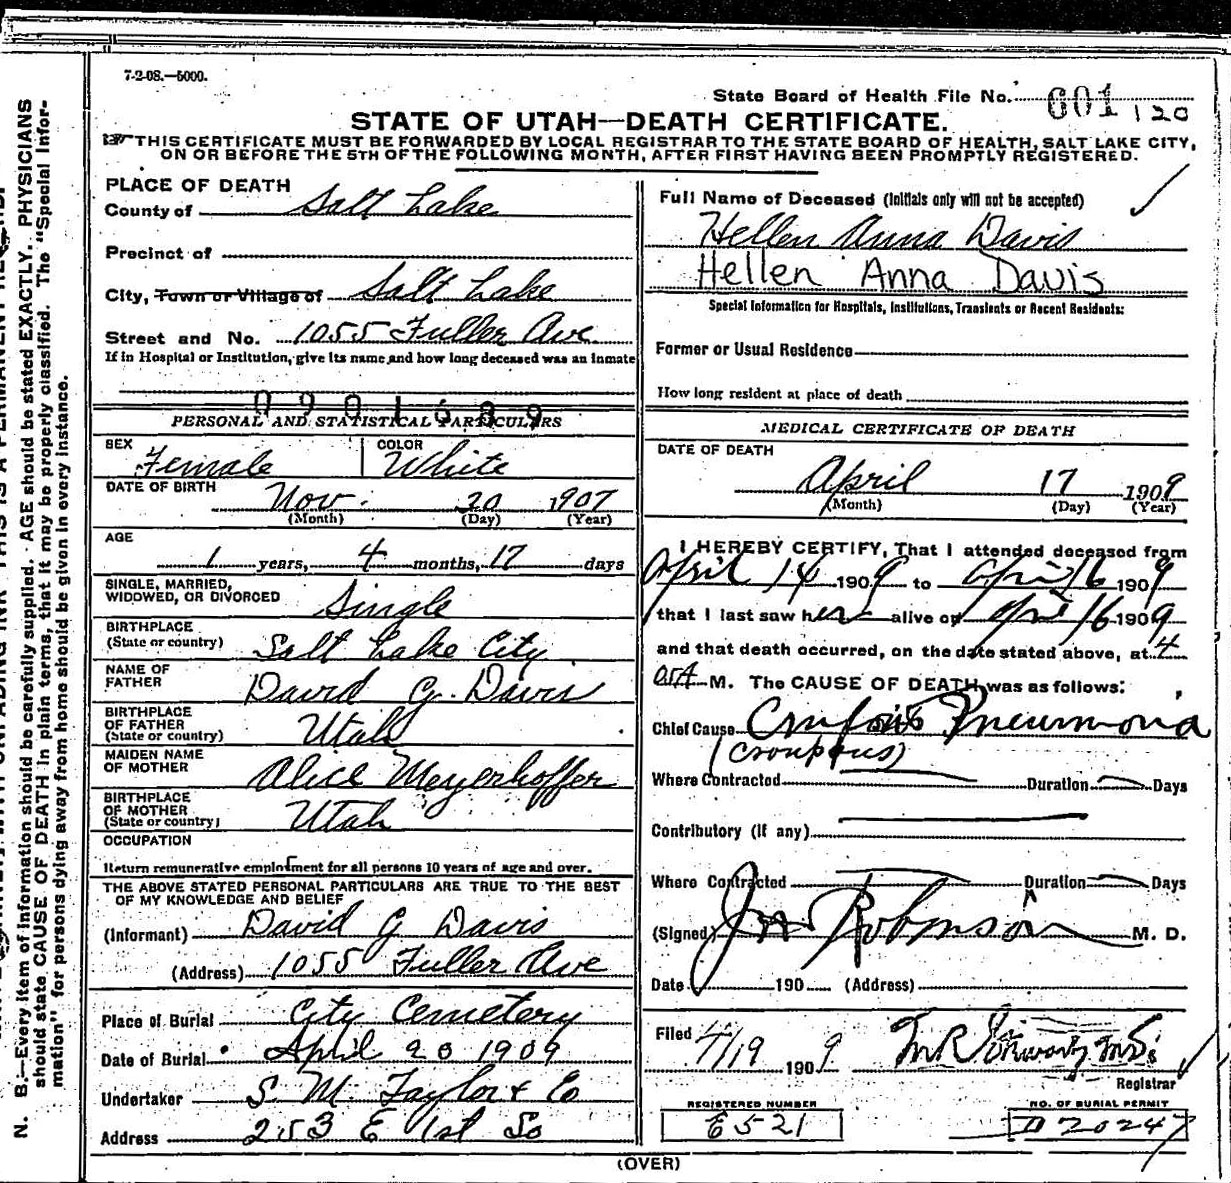 7-2-08.—5000.
State Board of Health File No. 601 120
STATE OF UTAH—DEATH CERTIFICATE.
THIS CERTIFICATE MUST BE FORWARDED BY LOCAL REGISTRAR TO THE STATE BOARD OF HEALTH, SALT LAKE CITY,
ON OR BEFORE THE 5TH OF THE FOLLOWING MONTH, AFTER FIRST HAVING BEEN PROMPTLY REGISTERED.
PLACE OF DEATH
County of Salt Lake
Precinct of
City, Town or Village of Salt Lake
Street and No. 1055 Fuller Ave.
If in Hospital or Institution, give its name and how long deceased was an inmate
0901689
PERSONAL AND STATISTICAL PARTICULARS
SEX Female COLOR White
DATE OF BIRTH Nov. 20 1907
(Month) (Day) (Year)
AGE
1 years, 4 months, 17 days
SINGLE, MARRIED,
WIDOWED, OR DIVORCED Single
BIRTHPLACE
(State or country) Salt Lake City
NAME OF
FATHER David G. Davis
BIRTHPLACE
OF FATHER
(State or country) Utah
MAIDEN NAME
OF MOTHER Alice Meyerhoffer
BIRTHPLACE
OF MOTHER
(State or country) Utah
OCCUPATION
Return remunerative employment for all persons 10 years of age and over.
THE ABOVE STATED PERSONAL PARTICULARS ARE TRUE TO THE BEST
OF MY KNOWLEDGE AND BELIEF
(Informant) David G Davis
(Address) 1055 Fuller Ave
Place of Burial City Cemetery
Date of Burial April 20 1909
Undertaker S. M. Taylor & Co
Address 253 E 1st So
Full Name of Deceased (Initials only will not be accepted)
Hellen Anna Davis
Hellen Anna Davis
Special Information for Hospitals, Institutions, Transients or Recent Residents:
Former or Usual Residence
How long resident at place of death
MEDICAL CERTIFICATE OF DEATH
DATE OF DEATH
April 17 1909
(Month) (Day) (Year)
I HEREBY CERTIFY, That I attended deceased from
April 14 1909 to April 16 1909
that I last saw her alive on April 16 1909
and that death occurred, on the date stated above, at 4
M. The CAUSE OF DEATH was as follows:
Chief Cause Pneumonia
(croupous)
Where Contracted Duration Days
Contributory (if any)
Where Contracted Duration Days
(Signed) Robinson M. D.
Date 190 (Address)
Filed 4/19 1909
Registrar
REGISTERED NUMBER
6521
NO. OF BURIAL PERMIT
D 20247
(OVER)
N. B.—Every item of information should be carefully supplied. AGE should be stated EXACTLY. PHYSICIANS
should state CAUSE OF DEATH in plain terms, that it may be properly classified. The "Special Infor-
mation" for persons dying away from home should be given in every instance.